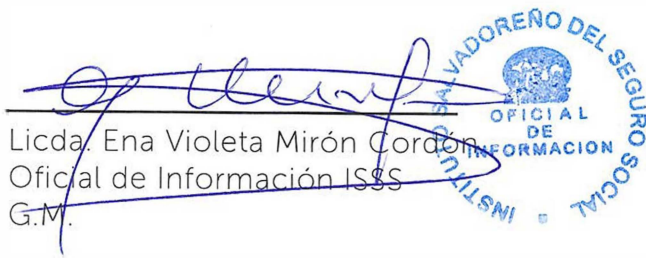 Licda. Ena Violeta Mirón Cordón
Oficial de Información ISSS
G.M.
INSTITUTO SALVADOREÑO DEL SEGURO SOCIAL
OFICIAL
DE
INFORMACION